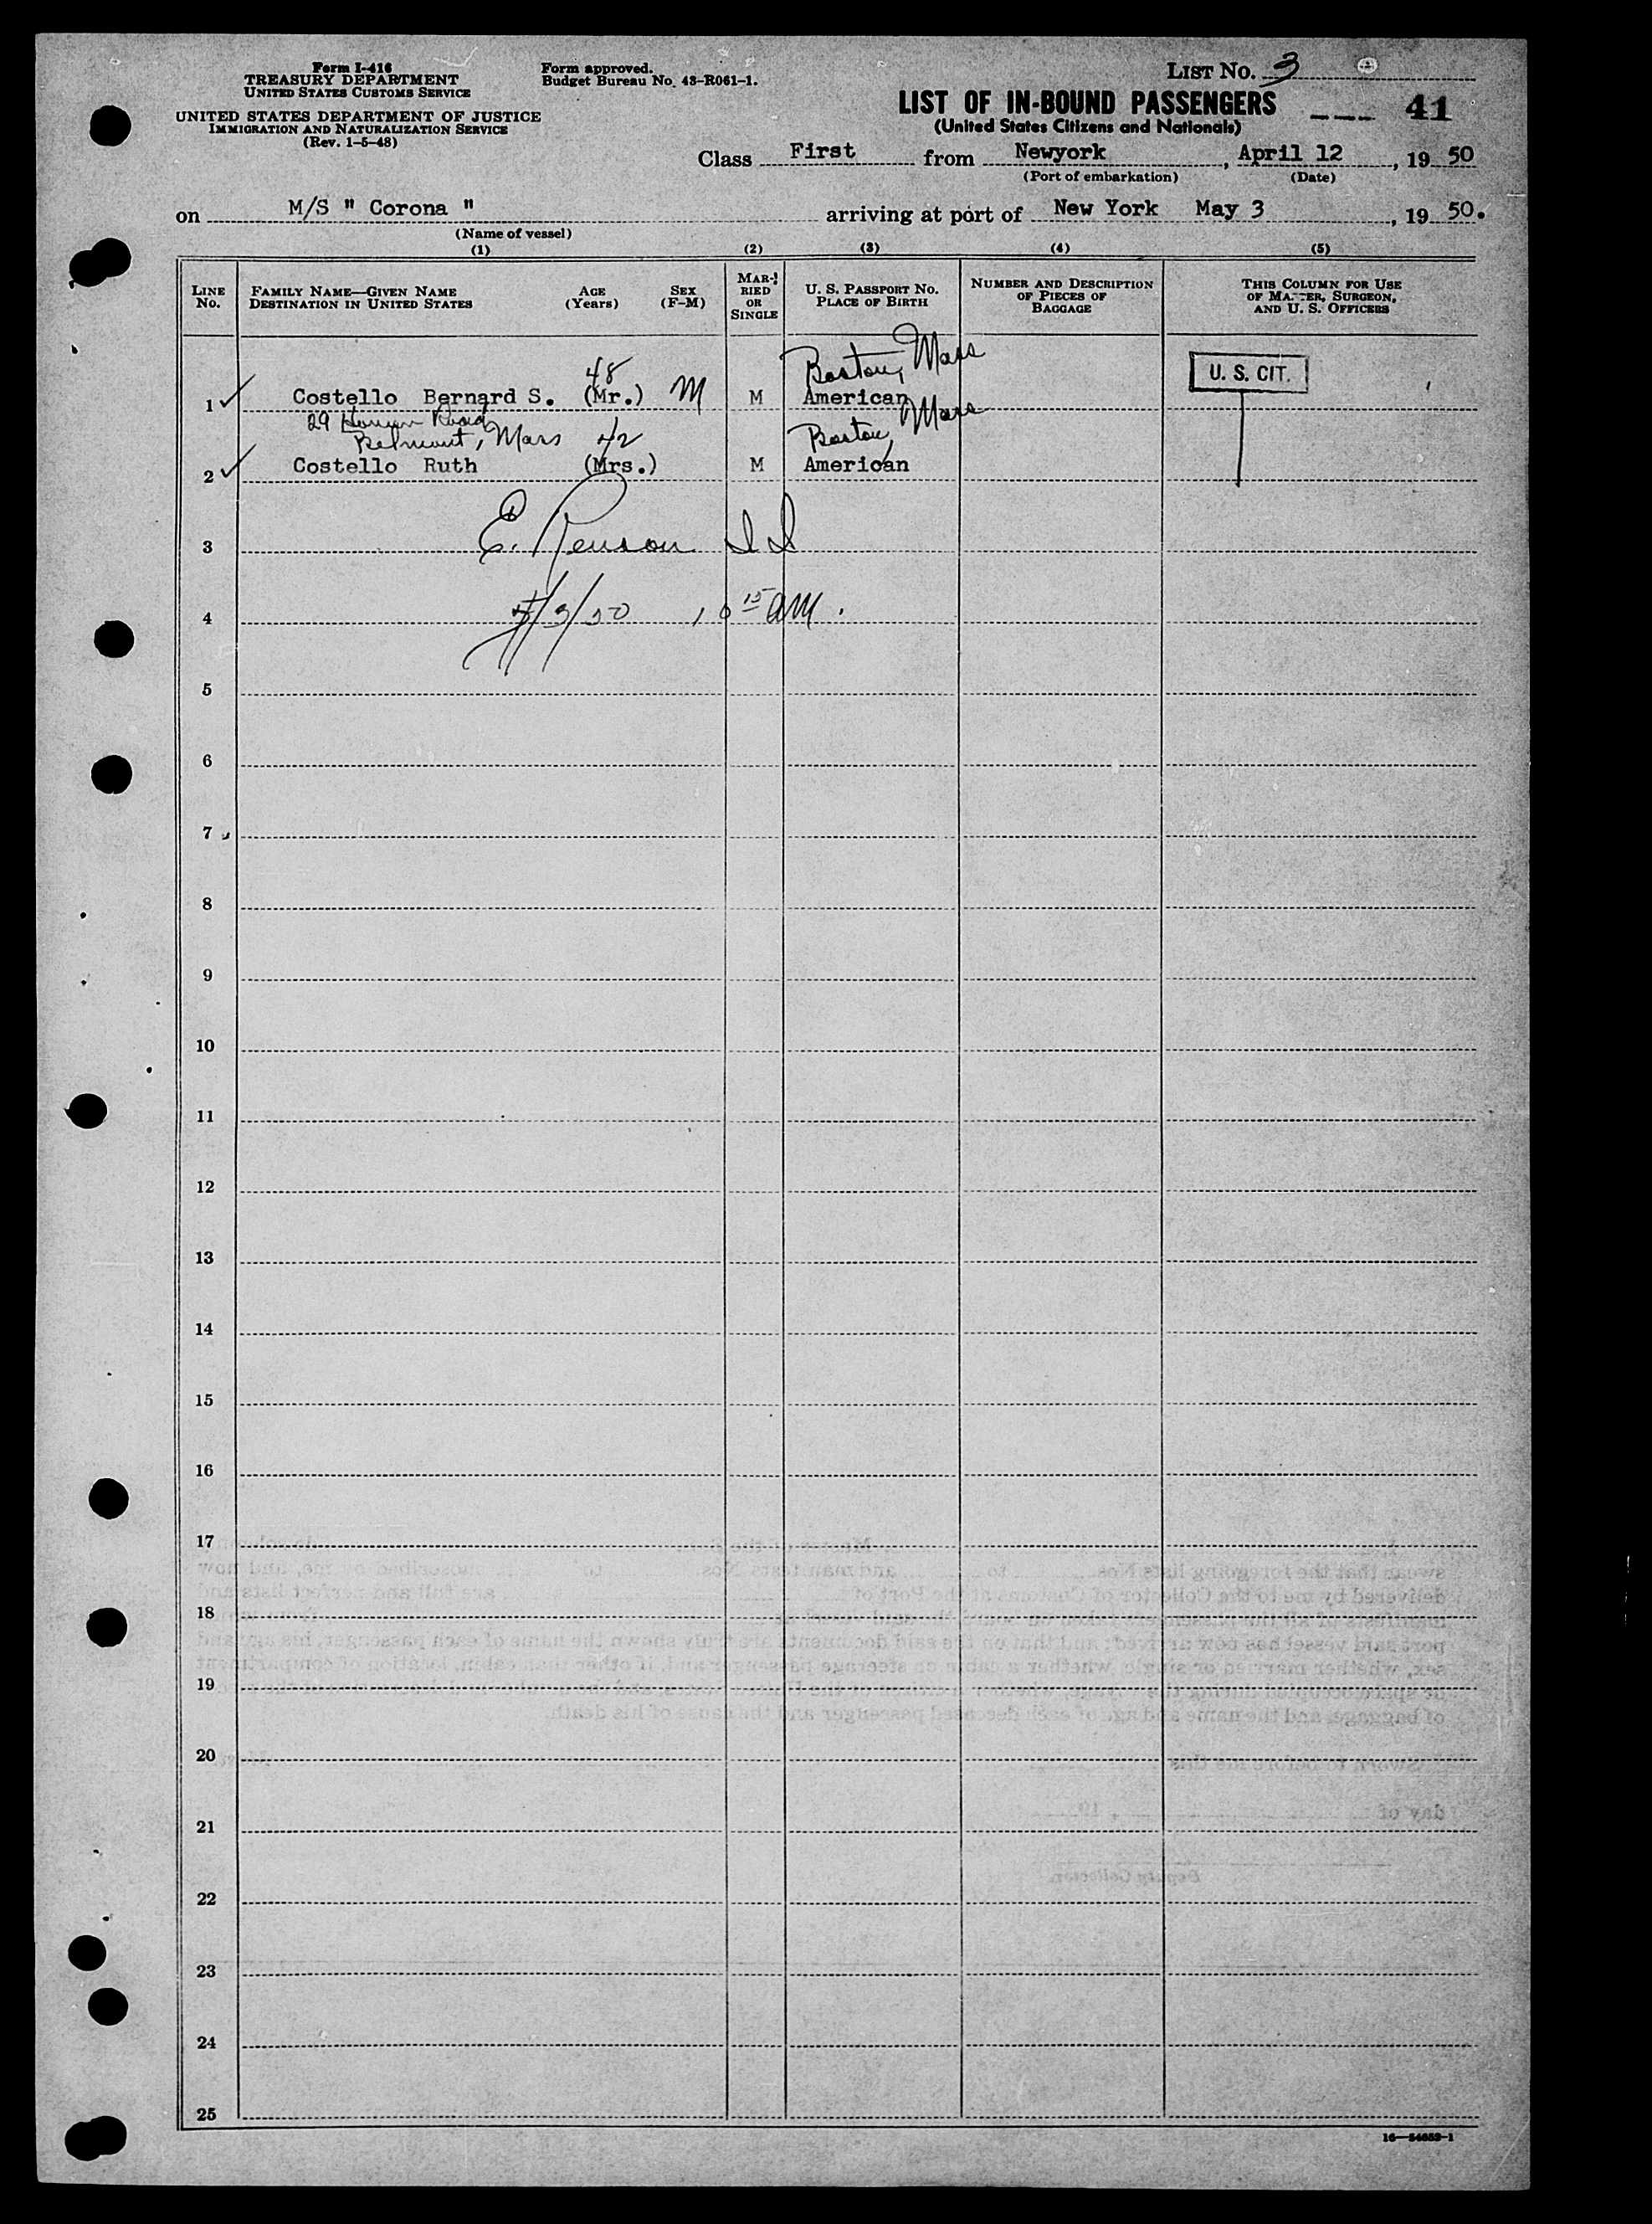 Form I-416
TREASURY DEPARTMENT
UNITED STATES CUSTOMS SERVICE
UNITED STATES DEPARTMENT OF JUSTICE
IMMIGRATION AND NATURALIZATION SERVICE
(Rev. 1-5-48)
Form approved.
Budget Bureau No. 43-R061-1.
LIST No. 3
LIST OF IN-BOUND PASSENGERS 41
(United States Citizens and Nationals)
Class First from Newyork, April 12, 19 50
(Port of embarkation) (Date)
on M/S " Corona " arriving at port of New York May 3, 19 50.
(Name of vessel)
(1) (2) (3) (4) (5)
LINE No.
FAMILY NAME—GIVEN NAME
DESTINATION IN UNITED STATES
AGE (Years)
SEX (F-M)
MAR-RIED OR SINGLE
U. S. PASSPORT NO.
PLACE OF BIRTH
NUMBER AND DESCRIPTION OF PIECES OF BAGGAGE
THIS COLUMN FOR USE OF MASTER, SURGEON, AND U. S. OFFICERS
48 Boston, Mass
1 Costello Bernard S. (Mr.) M M American U. S. CIT.
29 Road
Belmont, Mass 42 Boston, Mass
2 Costello Ruth (Mrs.) M American
3 E. Renson I I
4 5/3/50 10 15 AM.
5
6
7
8
9
10
11
12
13
14
15
16
17
18
19
20
21
22
23
24
25